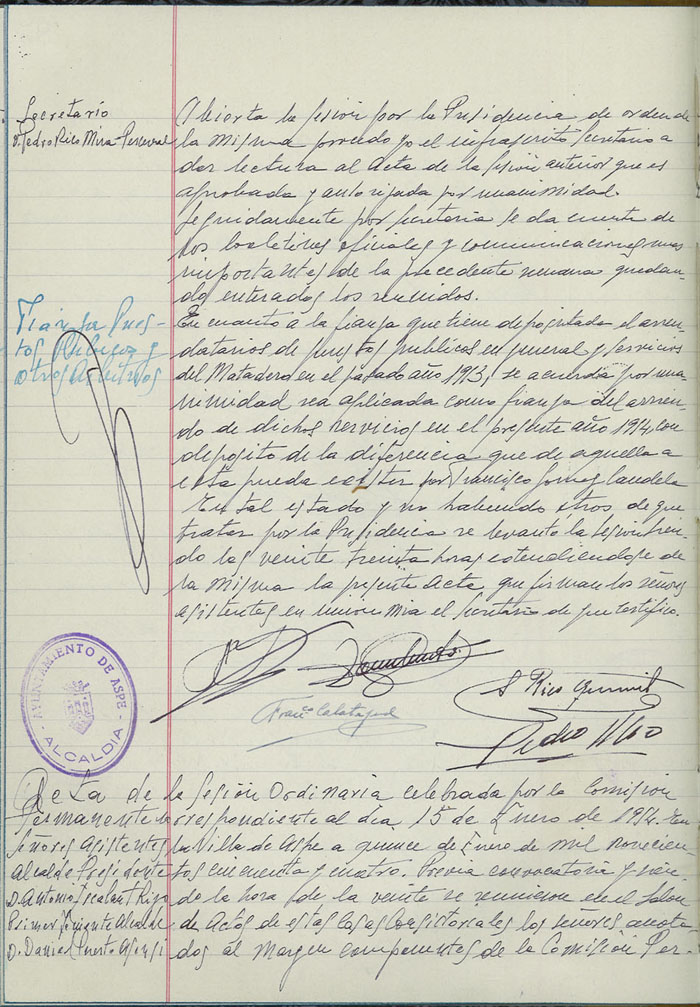 Secretario
D. Pedro Rico Mira-Perceval
Abierta la sesión por la Presidencia de orden de
la misma procedo yo el infrascrito Secretario a
dar lectura al Acta de la sesión anterior que es
aprobada y autorizada por unanimidad.
Seguidamente por Secretaria se da cuenta de
los boletines oficiales y comunicaciones mas
importantes de la precedente semana quedan-
do enterados los reunidos.
Fianza Pues-
tos Públicos y
otros Arbitrios
En cuanto a la fianza que tiene depositada el arren-
datarios de puestos publicos en general y servicios
del Matadero en el pasado año 1953, se acuerda por una-
nimidad sea aplicada como fianza del arrien-
do de dichos servicios en el presente año 1954, con
deposito de la diferencia que de aquella a
esta pueda existir por Francisco Gomez Candela
En tal estado y no habiendo otros de que
tratar por la Presidencia se levantó la sesión sien-
do las veinte treinta horas extendiendose de
la misma la presente Acta, que firman los señores
asistentes en union mia el Secretario de que certifico.
Franco Calatayud
Pedro Rico
AYUNTAMIENTO DE ASPE
ALCALDIA
Acta de la Sesión Ordinaria celebrada por la Comisión
Permanente correspondiente al dia 15 de Enero de 1954. En
Señores Asistentes
Alcalde Presidente
D. Antonio
Primer Teniente Alcalde
D. Daniel Puerto
la Villa de Aspe a quince de Enero de mil novecien-
tos cincuenta y cuatro. Previa convocatoria y sien-
do la hora de la veinte se reunieron en el Salon
de Actos de estas Casas Consistoriales los señores anota-
dos al margen componentes de la Comisión Per-